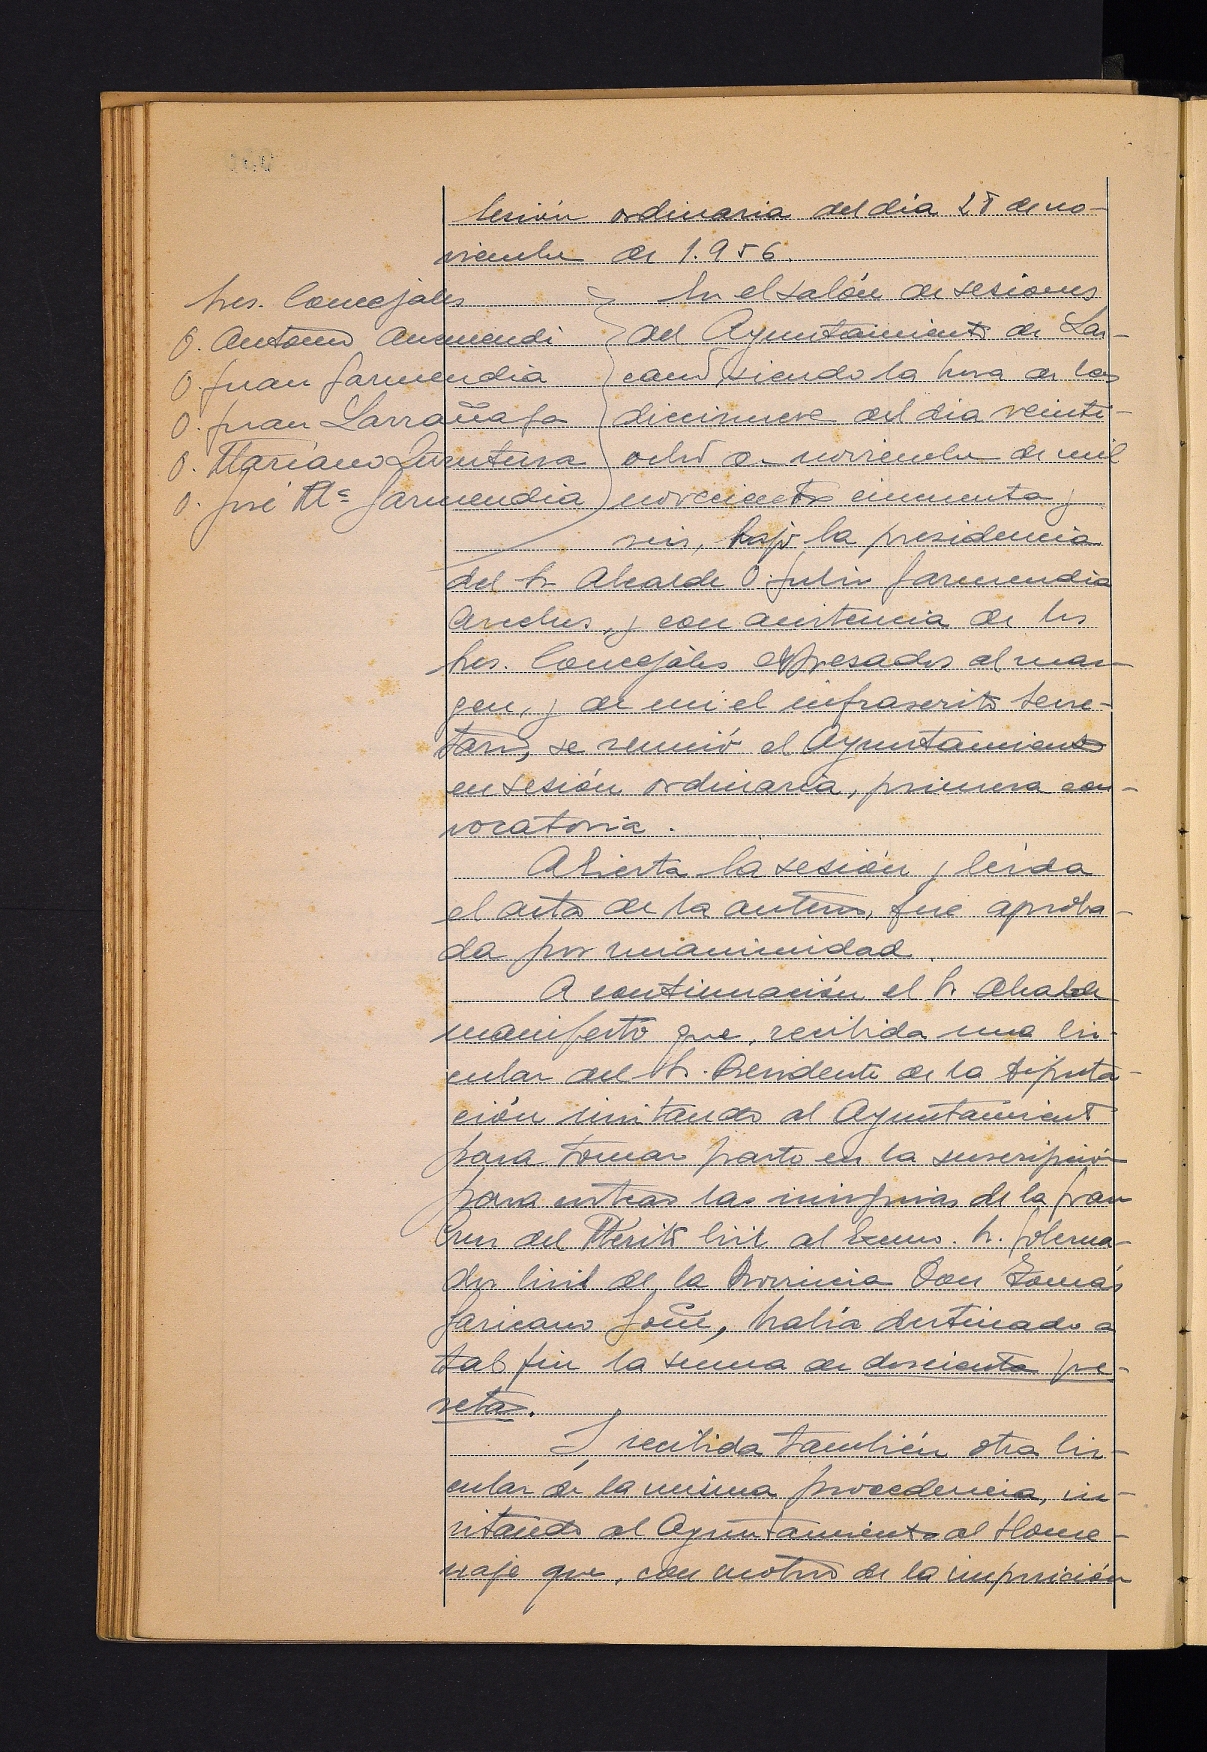 Sesión ordinaria del dia 28 de no-
viembre de 1.956.
Sres. Concejales
D. Antonio Aurmendi
D. Juan Garmendia
D. Juan Larrañaga
D. Mariano Zurutuza
D. José Mª Garmendia
En el salón de sesiones
del Ayuntamiento de Laz-
cano, siendo la hora de las
diecinueve del dia veinti-
ocho de noviembre de mil
novecientos cincuenta y
seis, bajo la presidencia
del Sr. Alcalde D. Julio Garmendia
y con asistencia de los
Sres. Concejales expresados al mar-
gen, y de mi el infrascrito Secre-
tario, se reunió el Ayuntamiento
en sesión ordinaria, primera con-
vocatoria.
Abierta la sesión y leida
el acta de la anterior, fue aproba-
da por unanimidad.
A continuación el Sr. Alcalde
manifestó que, recibida una Cir-
cular del Sr. Presidente de la Diputa-
ción invitando al Ayuntamiento
para tomar parte en la suscripción
para costear las insignias de la Gran
Cruz del Mérito Civil al Excmo. Sr. Goberna-
dor Civil de la Provincia Don Tomás
Garicano Goñi, habia destinado a
tal fin la suma de doscientas pe-
setas.
Y recibida también otra Cir-
cular de la misma procedencia, in-
vitando al Ayuntamiento al Home-
naje que, con motivo de la imposición